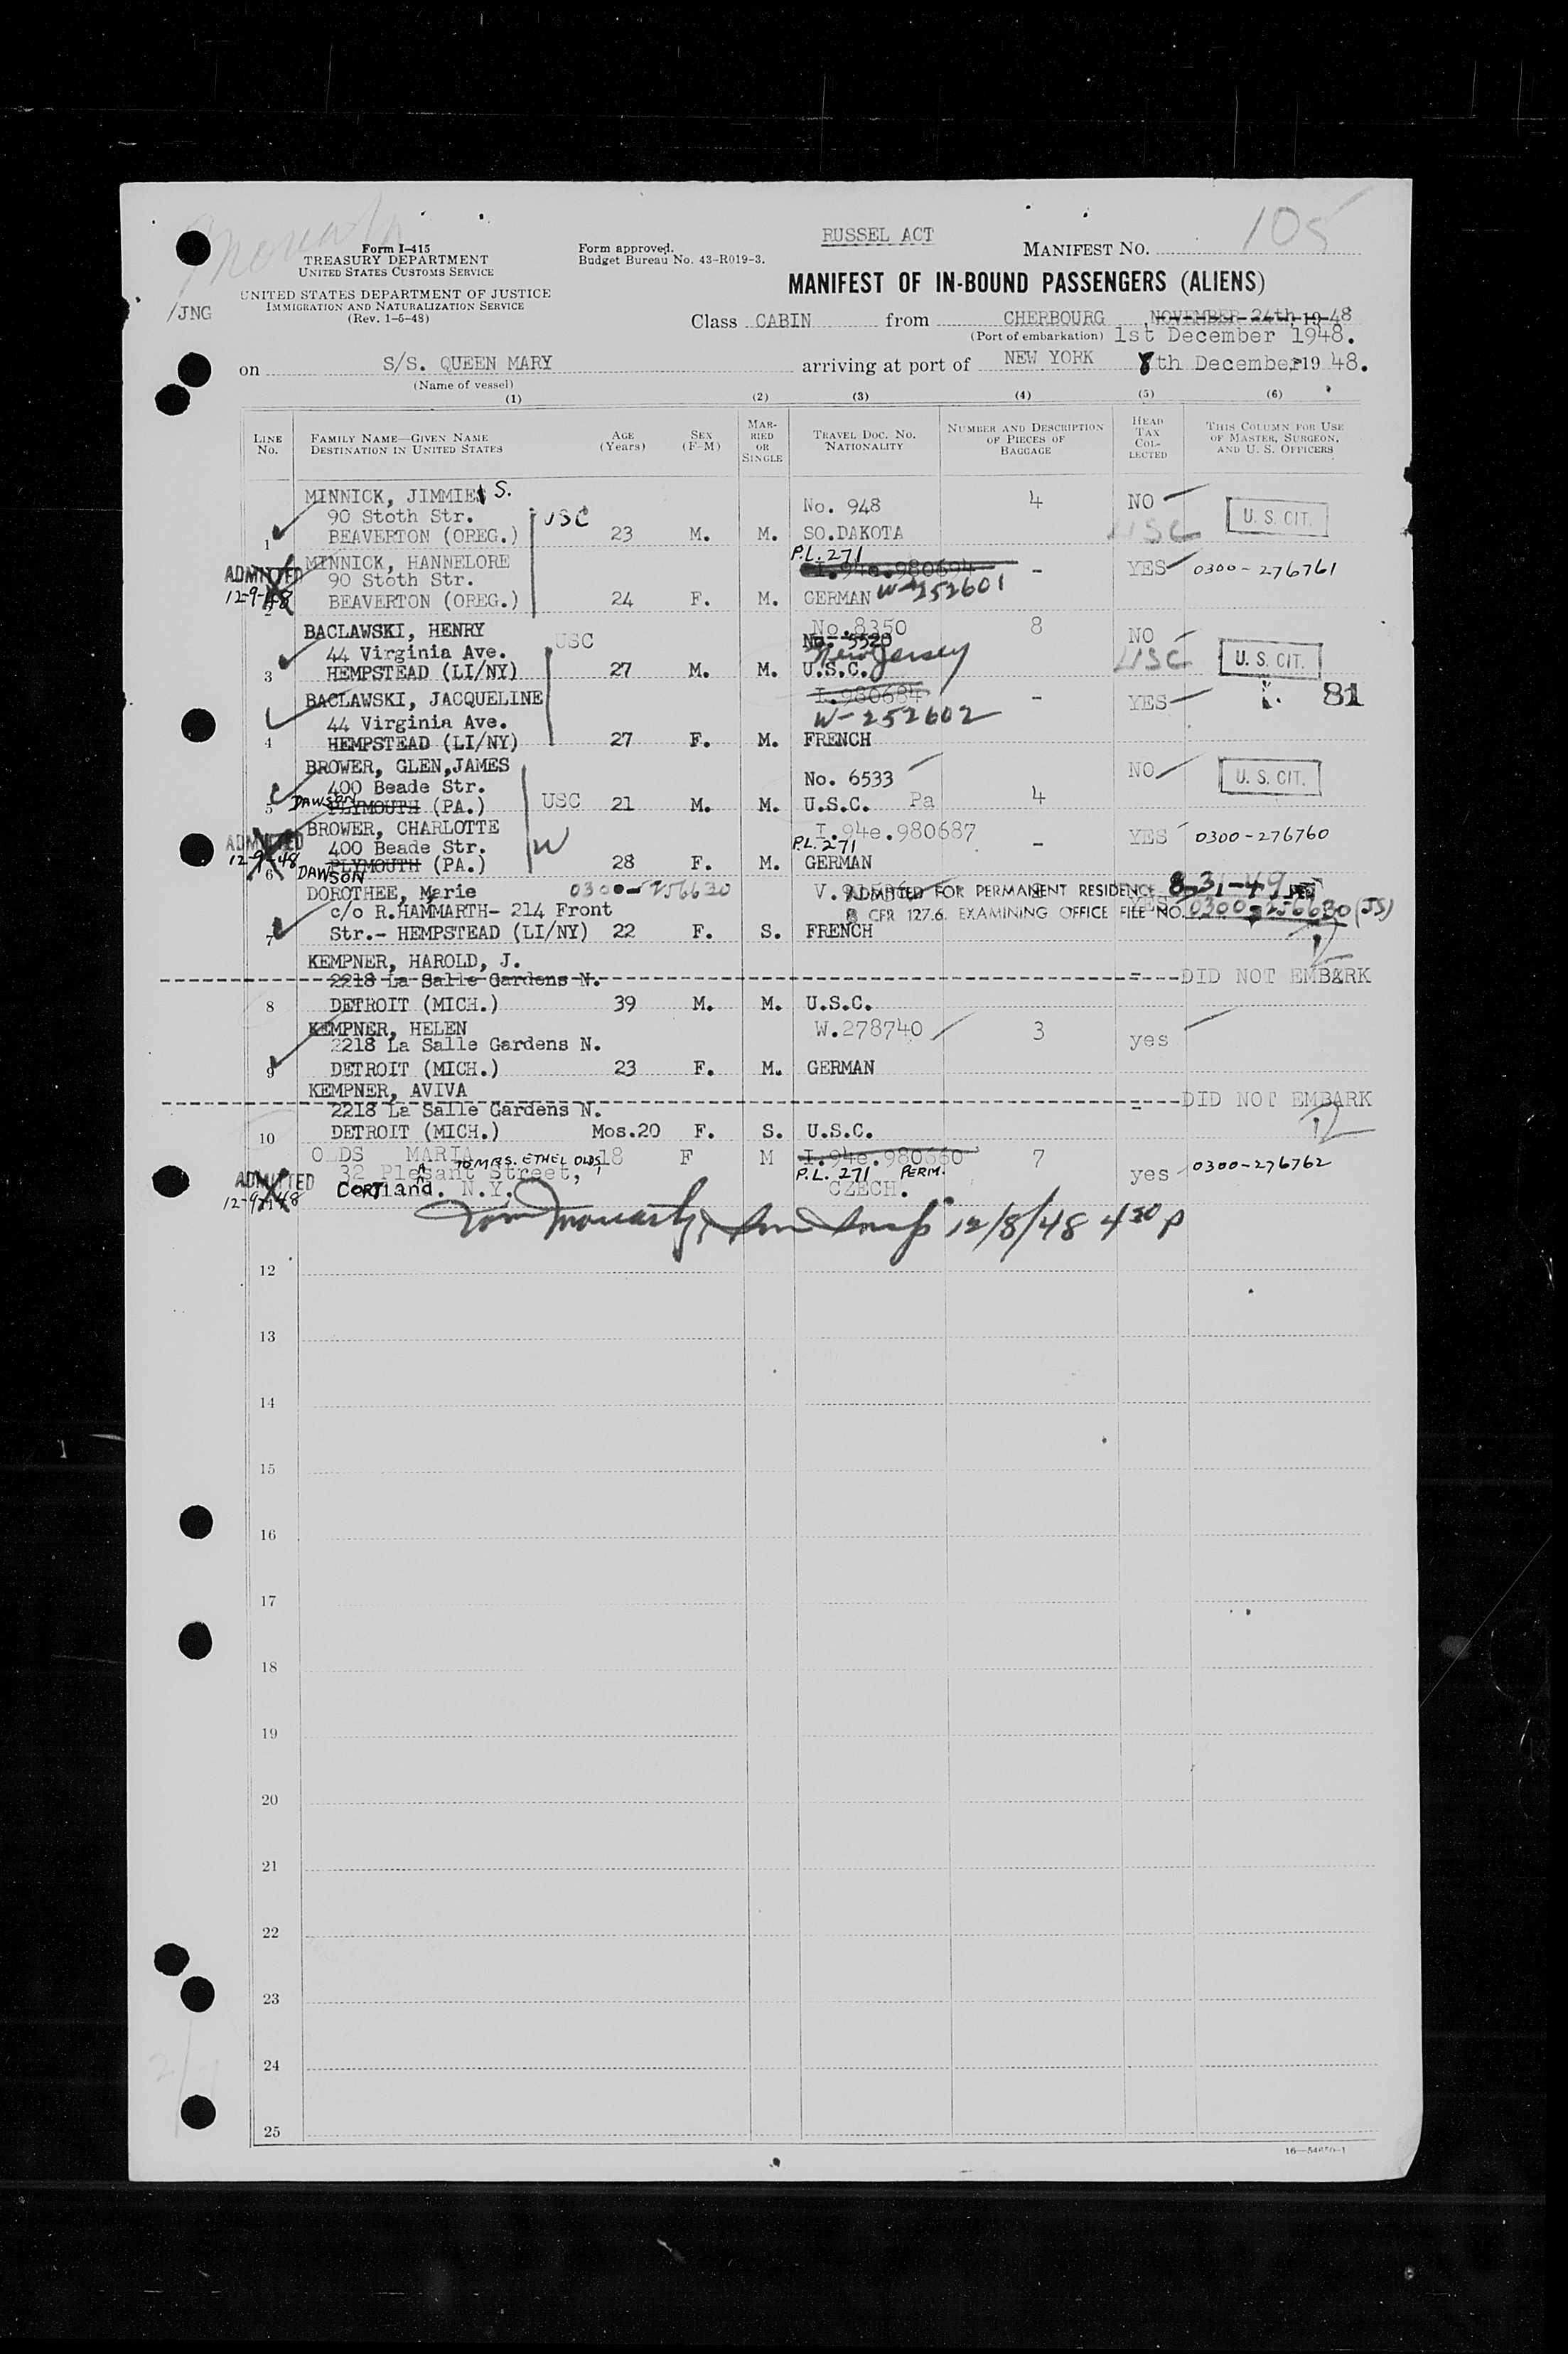 105
RUSSEL ACT
Form I-415
TREASURY DEPARTMENT
UNITED STATES CUSTOMS SERVICE
Form approved.
Budget Bureau No. 43-R019-3.
MANIFEST NO.
UNITED STATES DEPARTMENT OF JUSTICE
IMMIGRATION AND NATURALIZATION SERVICE
(Rev. 1-5-48)
/JNG
MANIFEST OF IN-BOUND PASSENGERS (ALIENS)
Class CABIN from CHERBOURG, NOVEMBER 24th, 1948
(Port of embarkation) 1st December 1948.
on S/S. QUEEN MARY arriving at port of NEW YORK 8th December, 1948.
(Name of vessel)
(1) (2) (3) (4) (5) (6)
LINE No. FAMILY NAME—GIVEN NAME DESTINATION IN UNITED STATES AGE (Years) SEX (F-M) MARRIED OR SINGLE TRAVEL DOC. NO. NATIONALITY NUMBER AND DESCRIPTION OF PIECES OF BAGGAGE HEAD TAX COLLECTED THIS COLUMN FOR USE OF MASTER, SURGEON, AND U. S. OFFICERS
MINNICK, JIMMIE S. No. 948 4 NO
90 Stoth Str. USC U. S. CIT.
1 BEAVERTON (OREG.) 23 M. M. SO.DAKOTA USC
MINNICK, HANNELORE P.L. 271
ADMITTED 90 Stoth Str. I.94e.980694 - YES 0300-276761
12-9-48 BEAVERTON (OREG.) 24 F. M. GERMAN W-252601
2
BACLAWSKI, HENRY No.8350 8 NO
44 Virginia Ave. USC No. 5520 New Jersey USC U. S. CIT.
3 HEMPSTEAD (LI/NY) 27 M. M. U.S.C.
BACLAWSKI, JACQUELINE I.980684 - YES 81
44 Virginia Ave. W-252602
4 HEMPSTEAD (LI/NY) 27 F. M. FRENCH
BROWER, GLEN,JAMES No. 6533 NO U. S. CIT.
400 Beade Str.
5 DAWSON PLYMOUTH (PA.) USC 21 M. M. U.S.C. Pa 4
BROWER, CHARLOTTE I.94e.980687 YES 0300-276760
ADMITTED 400 Beade Str. W P.L. 271 -
12-9-48 PLYMOUTH (PA.) 28 F. M. GERMAN
6 DAWSON
DOROTHEE, Marie 0300-256630 V. ADMITTED FOR PERMANENT RESIDENCE 8-31-49
c/o R.HAMMARTH- 214 Front YES 8 CFR 127.6. EXAMINING OFFICE FILE NO. 0300-256630 (JS)
7 Str.- HEMPSTEAD (LI/NY) 22 F. S. FRENCH
KEMPNER, HAROLD, J.
2218 La Salle Gardens N. - DID NOT EMBARK
8 DETROIT (MICH.) 39 M. M. U.S.C.
KEMPNER, HELEN W.278740 3 yes
2218 La Salle Gardens N.
9 DETROIT (MICH.) 23 F. M. GERMAN
KEMPNER, AVIVA
2218 La Salle Gardens N. - DID NOT EMBARK
10 DETROIT (MICH.) Mos.20 F. S. U.S.C.
OLDS MARIA 18 F M I.94e.980660 7 yes 0300-276762
ADMITTED 32 Plesant Street, TO MRS. ETHEL OLDS P.L. 271 PERM.
12-9-48 Cortland. N.Y. CZECH.
12/8/48 4 30 P
12
13
14
15
16
17
18
19
20
21
22
23
24
25